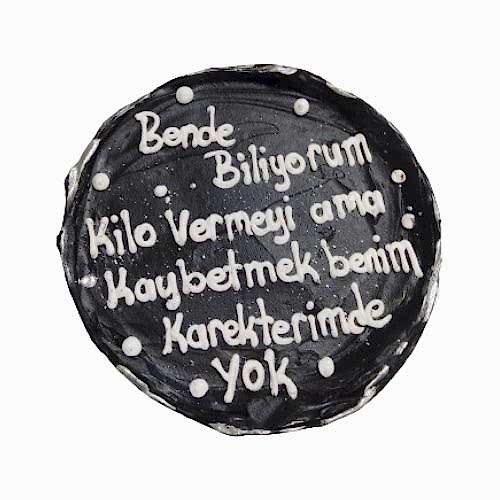 Bende
Biliyorum
Kilo Vermeyi ama
Kaybetmek benim
Karekterimde
Yok